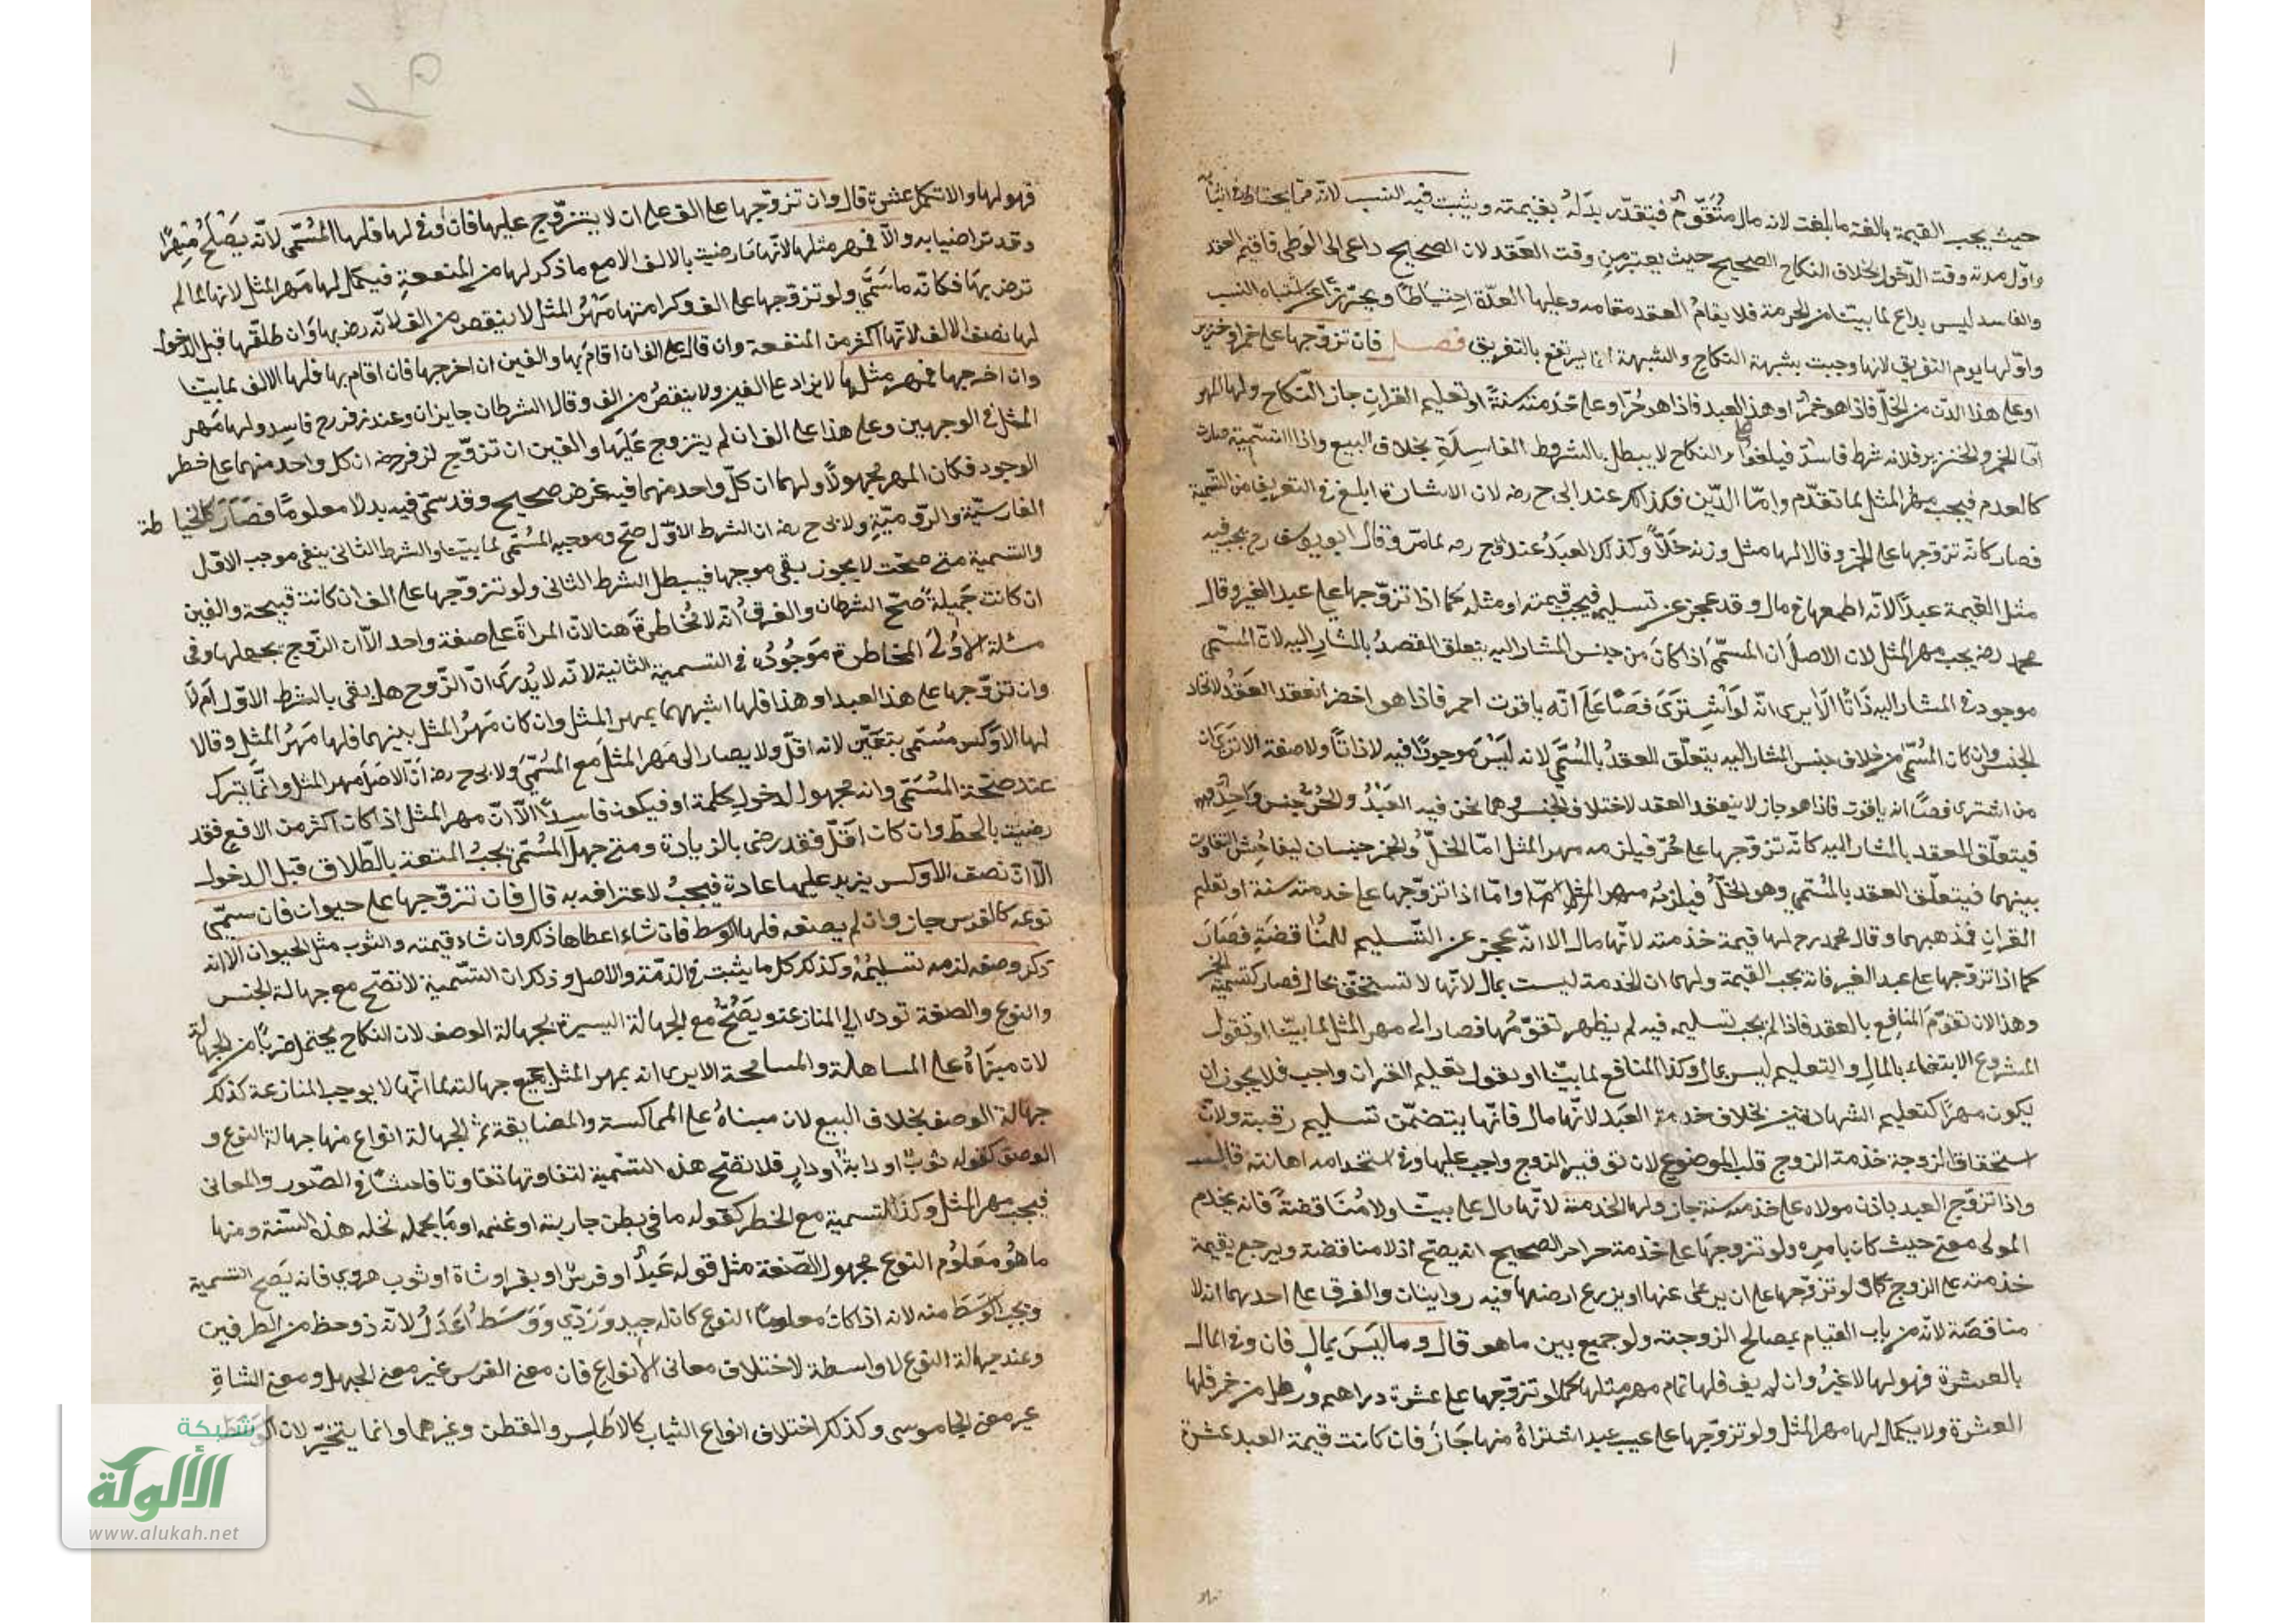 حيث يجب القيمة بالغة ما بلغت لانه مال متقوم فيتقدر بدله بقيمته ويثبت فيه النسب لانه مما يحتاط في اثباته
واول مدته وقت الدخول بخلاف النكاح الصحيح حيث يعتبر من وقت العقد لان الصحيح داعى الى الوطى فاقيم العقد
والفاسد ليس بداع لما بيّنا من الحرمة فلا يقام العقد مقامه وعليها العدّة احتياطًا وتحرّزًا عن اشتباه النسب
واولها يوم التفريق لانها وجبت بشبهة النكاح والشبهة انما يرتفع بالتفريق فصل فان تزوّجها على خمر او خنزير
او على هذا الدن من الخلّ فاذا هو خمر او هذ العبد فاذا هو حُرّ او على خدمته سنةً او تعليم القران جاز النكاح ولها المهر
امّا الخمر والخنزير فلانه شرط فاسد فيلغوا والنكاح لا يبطل بالشروط الفاسدة بخلاف البيع واذا التسمية صارت
كالعدم فيجب مهر المثل لما تقدّم وامّا الدّين فكذلك عند ابى ح رضه لان الاشارة ابلغ في التعريف من التسمية
فصار كانّه تزوّجها على الخمر وقالا لها مثل وزنه خلّاً وكذلك العبد عند ابى ح رحه لما مرّ وقال ابو يوسف رح يجب فيه
مثل القيمة عبدًا لانّه اطمعها في مال وقد عجز عن تسليمه فيجب قيمته او مثله كما اذا تزوّجها على عبد الغير وقال
محمد رضه يجب مهر المثل لان الاصل ان المسمّى اذا كان من جنس المشار اليه يتعلق القصد بالمشار اليه لان المسمّى
موجود في المشار اليه ذاتًا الا يرى انّه لو اشترى فصًّا على انّه ياقوت احمر فاذا هو اخضر انعقد العقد لاتحاد
الجنس وان كان المسمّى من خلاف جنس المشار اليه يتعلّق العقد بالمسمّى لانه ليس موجودًا فيه لا ذاتًا ولا صفة الا ترى ان
من اشترى فصًّا انه ياقوت فاذا هو جاز لا ينعقد العقد لاختلاف الجنس وهما نحن فيه العبد والحر جنس واحد
فيتعلّق العقد بالمشار اليه كانّه تزوّجها على حُرّ فيلزمه مهر المثل امّا الخلّ والخمر جنسان ليفاحش التفاوت
بينهما فيتعلّق العقد بالمسمّى وهو الخلّ فيلزمه وامّا اذا تزوّجها على خدمته سنة او تعليم
القران فمذهبهما وقال محمد رح لها قيمة خدمته لانّها مال الا انّه عجز عن التسليم للمناقضة فصار
كما اذا تزوّجها على عبد الغير فانه يجب القيمة ولهما ان الخدمة ليست بمال لانّها لا تستحقّ بحال فصار كتسمية الخمر
وهذا لان تقوّم المنافع بالعقد فاذا لم يجب تسليمه فيه لم يظهر تقوّمها فصار الى مهر المثل لما بيّنا او تقول
المشروع الابتغاء بالمال والتعليم ليس بمال وكذا المنافع لما بيّنا او يقول تعليم القران واجب فلا يجوز ان
يكون مهرًا كتعليم الشهادتين بخلاف خدمة العبد لانّها مال فانّها يتضمّن تسليم رقبته ولان
استحقاق الزوجة خدمة الزوج قلب الموضوع لان توقير الزوج واجب عليها وفي استخدامه اهانته قال
واذا تزوّج العبد باذن مولاه على خدمته سنة جاز ولها الخدمة لانّها مال على بيّنا ولا مناقضة فانه يخدم
المولى معنى حيث كان بامره ولو تزوجها على خدمة حر اخر الصحيح انه يصحّ اذ لا مناقضة ويرجع بقيمة
خدمته على الزوج كا ولو تزوّجها على ان يرعى غنمها او يزرع ارضها فيه روايتان والفرق على احديهما انه لا
مناقضة لانّه من باب القيام بمصالح الزوجية ولو جميع بين ماهو قال وما ليس بمال فان وفى المال
بالعشرة فهو لها لا غير وان لم يف فلها تمام مهر مثلها كما لو تزوّجها على عشرة دراهم ورطل من خمر فلها
العشرة ولا يكمل لها مهر المثل ولو تزوّجها على عيب عبد اشتراه منها جاز فان كانت قيمة العبد عشرة
فهو لها والا تكمل عشرة قال وان تزوّجها على الف على ان لا يتزوّج عليها فان وفى لها فلها المسمّى لانّه يصلح مهرًا
وقد تراضيا به والّا فمهر مثلها لانّها ما رضيت بالالف الا مع ما ذكر لها من المنفعة فيكمل لها مهر المثل لانها لما لم
ترض بها فكانّه ما سمّى ولو تزوّجها على الف وكرامتها مهر المثل لا ينقص من الف لانّه رضى بها وان طلّقها قبل الدخول
لها نصف الالف لانّها اكثر من المنفعة وان قال على الف ان اقام بها والفين ان اخرجها فان اقام بها فلها الالف لما بيّنا
وان اخرجها فمهر مثلها لا يزاد على الفين ولا ينقص من الف وقالا الشرطان جايزان وعند زفر رح فاسد ولها مهر
المثل في الوجهين وعلى هذا على الف ان لم يتزوج عليها والفين ان تزوّج لزفر رضه ان كل واحد منهما على خطر
الوجود فكان المهر مجهولًا ولهما ان كلّ واحد منهما فيه غرض صحيح وقد سمّى فيه بدلا معلومًا فصار كالخياطة
الفارسيّة والروميّة ولابى ح رضه ان الشرط الاوّل صحّ وموجبه المسمّى لما بيّنا والشرط الثانى ينفى موجب الاوّل
والتسمية متى صحّت لا يجوز بقى موجبها فيبطل الشرط الثانى ولو تزوّجها على الف ان كانت قبيحة والفين
ان كانت جميلة صحّ الشرطان والفرق انّه لا مخاطرة هنا لانّ المراة على صفة واحد الّا ان الزوج يجهلها وفى
مسئلة الاولى المخاطرة موجودة في التسمية الثانية لانّه لا يدرى انّ الزوج هل بقى بالشرط الاوّل ام لا
وان تزوّجها على هذ العبد او هذا فلها اشبههما بمهر المثل وان كان مهر المثل بينهما فلها مهر المثل وقالا
لها الاوكس مسمّى بتعيّن لانه اقلّ ولا يصار الى مهر المثل مع المسمّى ولابى ح رضه انّ الاصل مهر المثل وانّما يترك
عند صحّة المسمّى وانه مجهول لدخول كلمة او فيكون فاسدًا الّا انّ مهر المثل اذا كان اكثر من الافع فقد
رضيت بالحطّ وان كان اقلّ فقد رضى بالزيادة ومتى جهل المسمّى يجب المتعة بالطّلاق قبل الدخول
الّا انّ نصف الاوكس يزيد عليها عادة فيجب لاعترافه به قال فان تزوّجها على حيوان فان سمّى
نوعه كالفرس جاز وان لم يصفه فلها الوسط فان شاء اعطاها ذلك وان شاء قيمته والثوب مثل الحيوان الا انه
ذكر وصفه لزمه تسليمه وكذلك كل ما يثبت في الذمّة والاصل وذلك ان التسمية لا تصّح مع جهالة الجنس
والنوع والصفة تودى الى المنازعة ويصحّ مع الجهالة اليسيرة كجهالة الوصف لان النكاح يحتمل ضربًا من الجهالة
لان مبناه على المساهلة والمسامحة الا يرى انه بمهر المثل مع جهالته لما انّها لا يوجب المنازعة كذلك
جهالة الوصف بخلاف البيع لان مبناه على المماكسة والمضايقة ثم الجهالة انواع منها جهالة النوع و
الوصف كقوله ثوب او دابة او دار فلا تصّح هذه التسمية لتفاوتها تفاوتا فاحشا في الصّور والمعانى
فيجب مهر المثل وكذا التسمية مع الخطر كقوله ما في بطن جاريته او غنمه او ما يحمله نخله هذه السّنة ومنها
ما هو معلوم النوع مجهول الصّفة مثل قوله عبد او فرس او بقر او شاة او ثوب هروى فانه يصح التسمية
ويجب الوسط منه لانه اذا كان معلوم النوع كان له جيد وردّى ووسط اعدل لانّه ذو حظ من الطرفين
وعند جهالة النوع لا واسطة لاختلاف معانى الانواع فان معنى الفرس غير معنى الجمل ومعنى الشاة
غير معنى الجاموس وكذلك اختلاف انواع الثياب كالاطلس والقطن وغيرهما وانما يتخيّر لان الوسط
شبكة
الألوكة
www.alukah.net